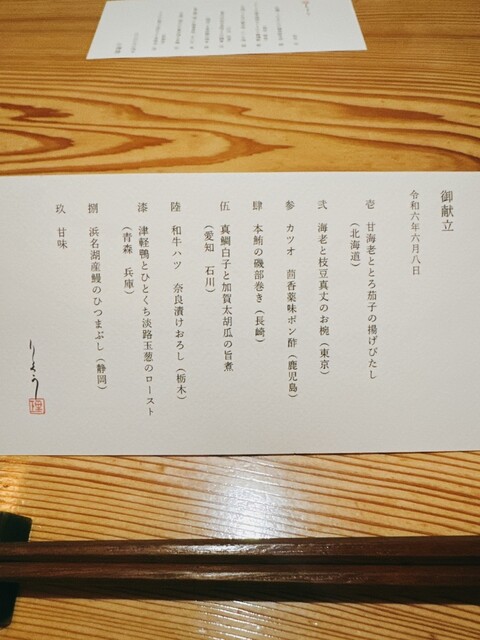 御献立
令和六年六月八日
壱 甘海老ととろ茄子の揚げびたし
（北海道）
弐 海老と枝豆真丈のお椀（東京）
参 カツオ 茴香薬味ポン酢（鹿児島）
肆 本鮪の磯部巻き（長崎）
伍 真鯛白子と加賀太胡瓜の旨煮
（愛知 石川）
陸 和牛ハツ 奈良漬けおろし（栃木）
漆 津軽鴨とひとくち淡路玉葱のロースト
（青森 兵庫）
捌 浜名湖産鰻のひつまぶし（静岡）
玖 甘味
りょう